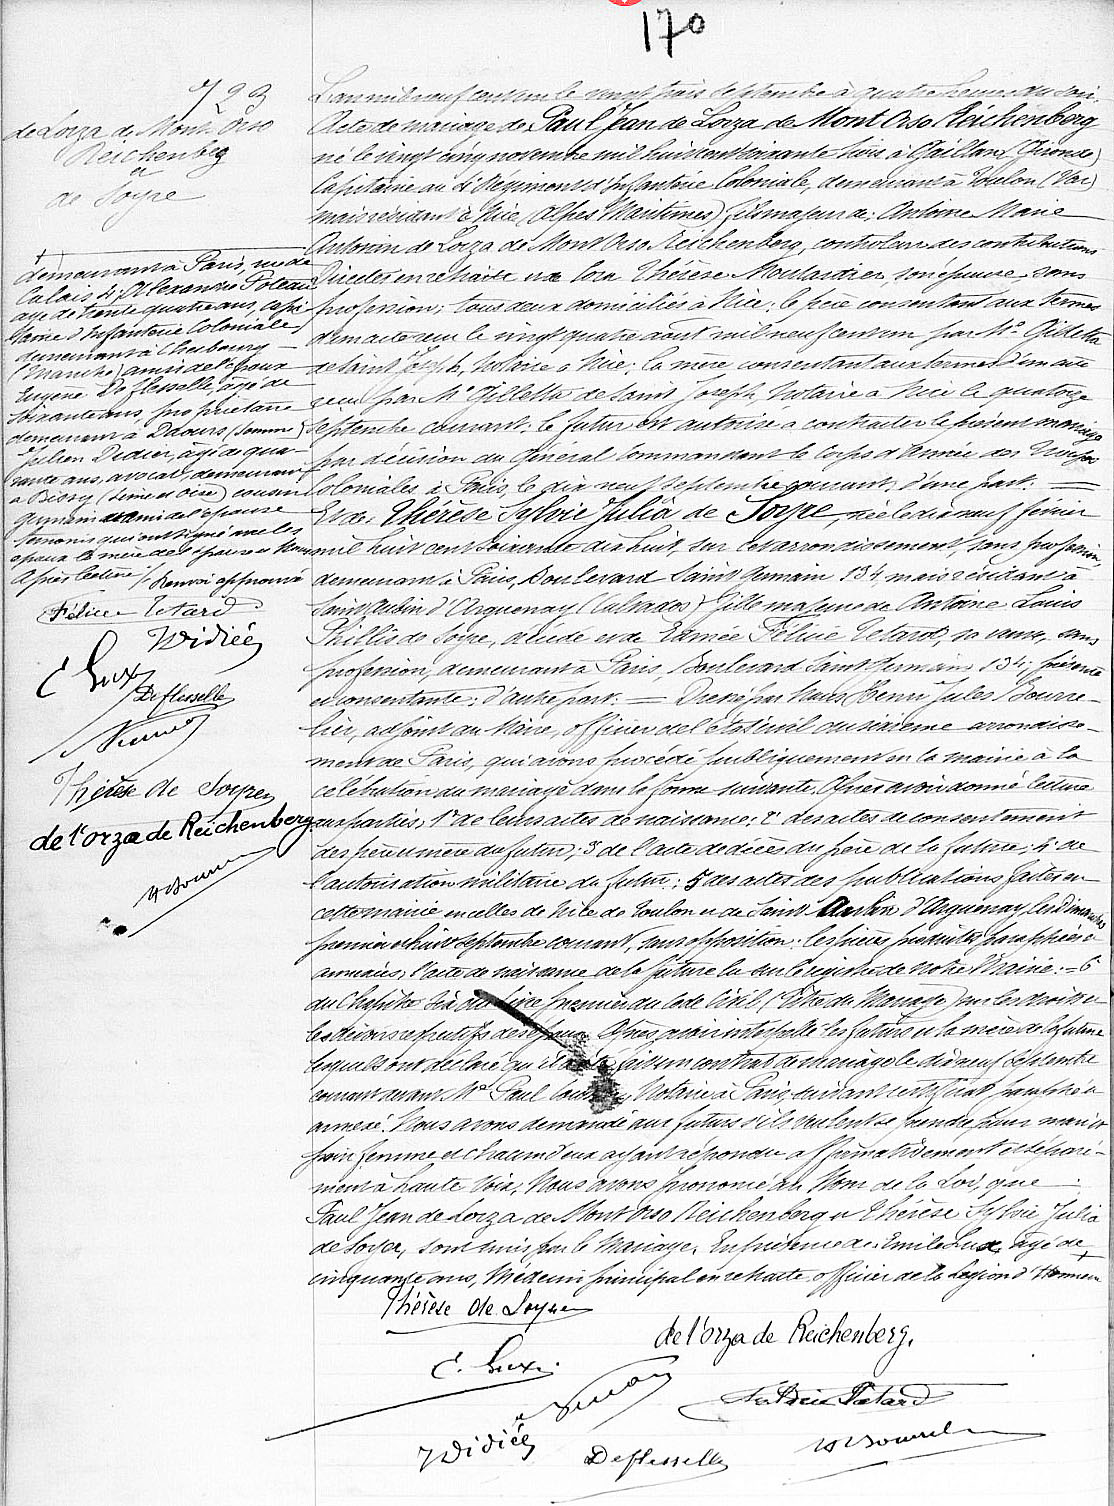 170
723
de Lorza de Mont Orso
Reichenberg
et
de Soyre
L'an mil neuf cent un le vingt trois septembre à quatre heures du soir,
Acte de mariage de Paul Jean de Lorza de Mont Orso Reichenberg
né le vingt cinq novembre mil huit cent soixante trois à Gaillan (Gironde)
Capitaine au 4e Régiment d'Infanterie Coloniale, demeurant à Toulon (Var)
mais résidant à Nice (Alpes Maritimes) fils majeur de: Antoine Marie
Antonin de Lorza de Mont Orso Reichenberg, controleur des contributions
Directes en retraite et de Thérèse son épouse, sans
profession; tous deux domiciliés à Nice; le père consentant aux termes
d'un acte reçu le vingt quatre août mil neuf cent un par Me Gilletta
de Saint Joseph, Notaire à Nice; la mère consentant aux termes d'un acte
reçu par Me Gilletta de Saint Joseph, Notaire à Nice le quatorze
septembre courant; le futur est autorisé a contracter le présent mariage
par décision du Général Commandant le Corps d'Armée des Troupes
Coloniales à Paris, le dix neuf septembre courant, d'une part.
Et de: Thérèse Sylvie Julia de Soyre, née le dix neuf février
mil huit cent soixante dix huit, sur cet arrondissement, sans profession,
demeurant à Paris, Boulevard Saint Germain 134 mais résidant à
Saint Aubin d'Arquenay (Calvados) fille majeure de Antoine Louis
de Soyre, décédé et de Edmée Félicie Tetard, sa veuve, sans
profession, demeurant à Paris, Boulevard Saint Germain 134; présente
et consentante; d'autre part. Dressé par Nous Henri Jules Bourre-
lier, adjoint au Maire, officier de l'état civil du sixième arrondisse-
ment de Paris, qui avons procédé publiquement en la mairie à la
célébration du mariage dans la forme suivante. Après avoir donné lecture
aux parties, 1° de leurs actes de naissance; 2° des actes de consentement
des père et mère du futur; 3° de l'acte de décès du père de la future; 4° de
l'autorisation militaire du futur; 5° des actes des publications faites en
cette mairie en celles de Nice de Toulon et de Saint Aubin d'Arquenay les dimanches
premier et huit septembre courant, sans opposition; les pièces produites paraphées et
annexées, l'acte de naissance de la future lu sur le registre de notre Mairie; 6°
du Chapitre six du livre premier du Code Civil (Titre du Mariage) sur les droits et
les devoirs respectifs des époux. Après avoir interpellé les futurs et la mère de la future
lesquels ont déclaré qu'il a été fait un contrat de mariage le dix neuf septembre
courant devant Me Paul Notaire à Paris, suivant certificat paraphé et
annexé. Nous avons demandé aux futurs s'ils veulent se prendre pour mari et
pour femme et chacun d'eux ayant répondu affirmativement et séparé-
ment à haute voix, Nous avons prononcé au Nom de la Loi, que
Paul Jean de Lorza de Mont Orso Reichenberg et Thérèse Sylvie Julia
de Soyer, sont unis par le Mariage. En présence de: Emile Lux, âgé de
cinquante ans, Médecin principal en retraite officier de la Légion d'Honneur +
+
demeurant à Paris, rue de
Calais, 4; Alexandre Poteau
âgé de trente quatre ans, capi-
taine d'Infanterie Coloniale,
demeurant à Cherbourg
(Manche) amis de l'époux
Eugène Deflesselle, âgé de
soixante ans, propriétaire
demeurant à Daours (Somme)
Julien Didier, âgé de qua-
rante ans, avocat, demeurant
à (Seine et Oise) cousin
germain et ami de l'épouse
Témoins qui ont signé avec les
époux la mère de l'épouse et Nous
après lecture / Renvoi approuvé
Félicie Tetard
J Didier
E Lux
Deflesselle
Thérèse de Soyre
de l'orza de Reichenberg
Thérèse de Soyre
de l'orza de Reichenberg.
E. Lux
Félicie Tetard
J Didier
Deflesselle